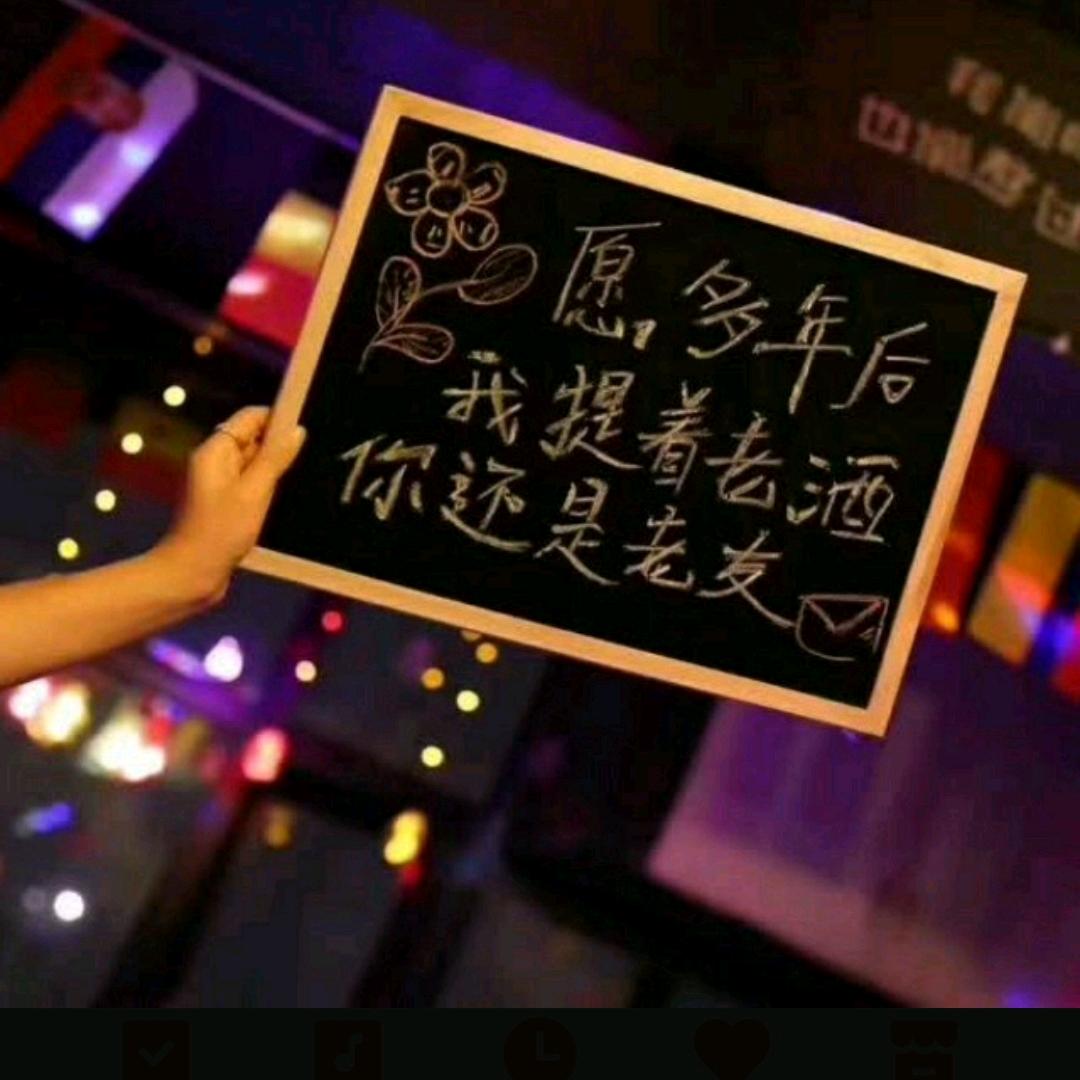 愿多年后
我提着老酒
你还是老友